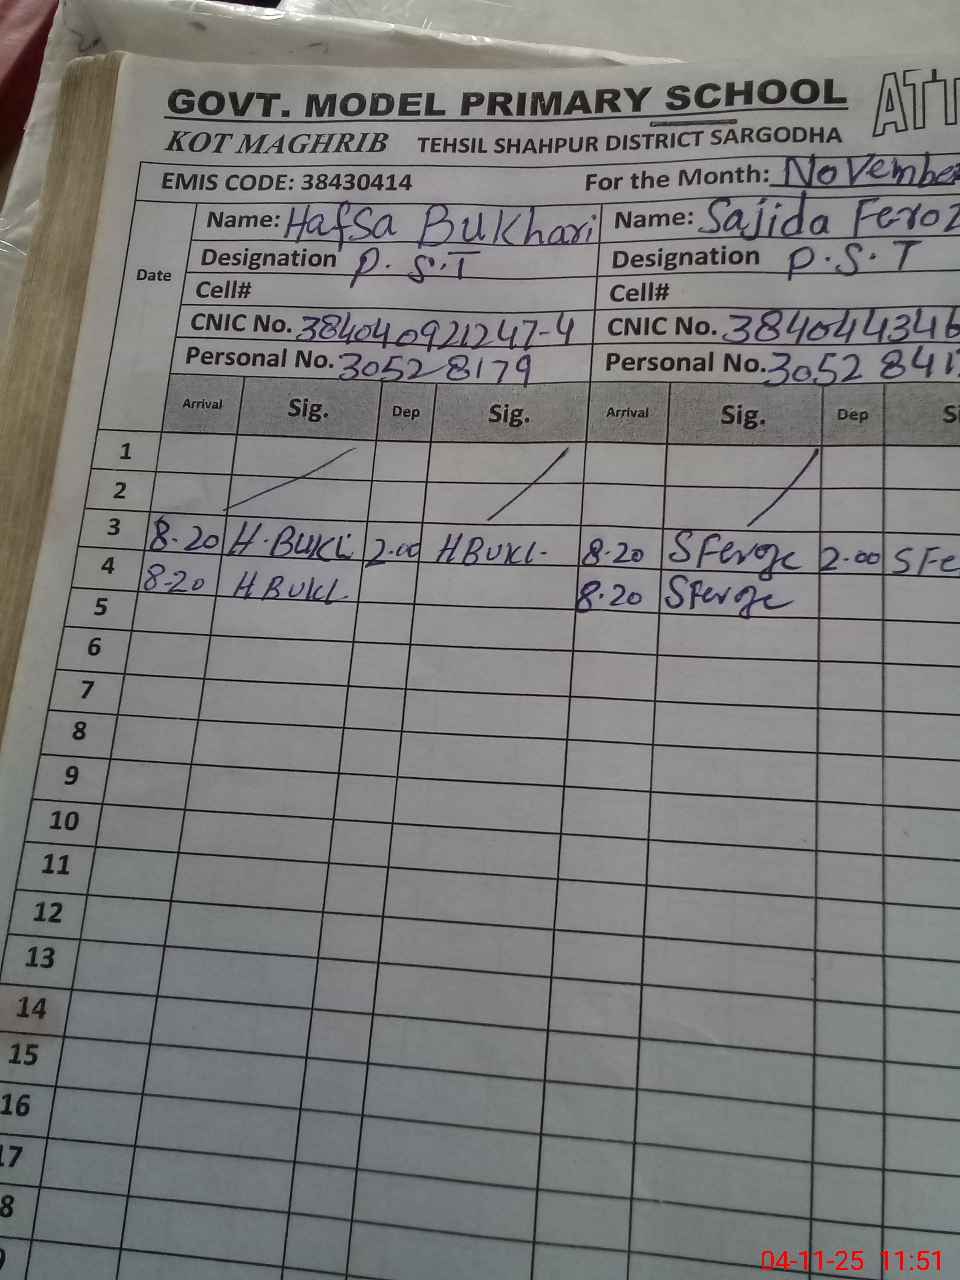 GOVT. MODEL PRIMARY SCHOOL ATT
KOT MAGHRIB TEHSIL SHAHPUR DISTRICT SARGODHA
EMIS CODE: 38430414 For the Month: November
Name: Hafsa Bukhari Name: Sajida Feroz
Designation P.S.T Designation P.S.T
Date
Cell# Cell#
CNIC No. 384040921247-4 CNIC No. 384044346
Personal No. 30528179 Personal No. 3052841
Arrival Sig. Dep Sig. Arrival Sig. Dep Si
1
2
3 8-20 H.BUKL 2.00 HBUKL. 8-20 SFeroze 2.00 SFe
4 8-20 HBUKL 8.20 SFeroze
5
6
7
8
9
10
11
12
13
14
15
16
17
8
04-11-25 11:51